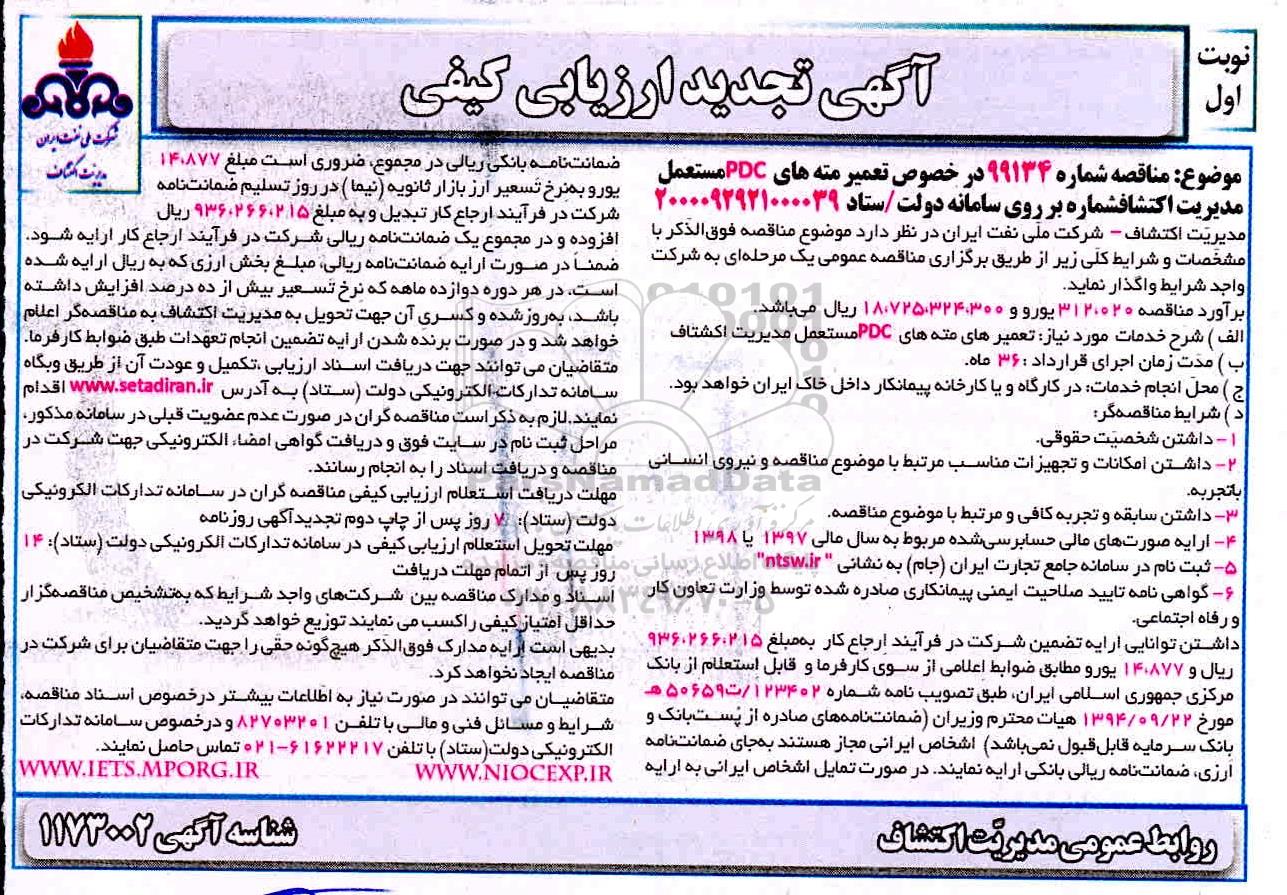 نوبت
اول
آگهی تجدید ارزیابی کیفی
شرکت ملی نفت ایران
مدیریت اکتشاف
موضوع: مناقصه شماره ۹۹۱۳۴ در خصوص تعمیر مته های PDC مستعمل
مدیریت اکتشافشماره بر روی سامانه دولت/ستاد ۲۰۰۰۰۹۲۹۲۱۰۰۰۰۳۹
مدیریّت اکتشاف – شرکت ملّی نفت ایران در نظر دارد موضوع مناقصه فوق‌الذّکر با
مشخّصات و شرایط کلّی زیر از طریق برگزاری مناقصه عمومی یک مرحله‌ای به شرکت
واجد شرایط واگذار نماید.
برآورد مناقصه ۳۱۲،۰۲۰ یورو و ۱۸،۷۲۵،۳۲۴،۳۰۰ ریال می‌باشد.
الف ) شرح خدمات مورد نیاز: تعمیر های مته های PDC مستعمل مدیریت اکشتاف
ب ) مدّت زمان اجرای قرارداد : ۳۶ ماه.
ج ) محلّ انجام خدمات: در کارگاه و یا کارخانه پیمانکار داخل خاک ایران خواهد بود.
د ) شرایط مناقصه‌گر:
۱- داشتن شخصیّت حقوقی.
۲- داشتن امکانات و تجهیزات مناسب مرتبط با موضوع مناقصه و نیروی انسانی
باتجربه.
۳- داشتن سابقه و تجربه کافی و مرتبط با موضوع مناقصه.
۴- ارایه صورت‌های مالی حسابرسی‌شده مربوط به سال مالی ۱۳۹۷ یا ۱۳۹۸
۵- ثبت نام در سامانه جامع تجارت ایران (جام) به نشانی " ntsw.ir"
۶- گواهی نامه تایید صلاحیت ایمنی پیمانکاری صادره شده توسط وزارت تعاون کار
و رفاه اجتماعی.
داشتن توانایی ارایه تضمین شرکت در فرآیند ارجاع کار به‌مبلغ ۹۳۶،۲۶۶،۲۱۵
ریال و ۱۴،۸۷۷ یورو مطابق ضوابط اعلامی از سوی کارفرما و قابل استعلام از بانک
مرکزی جمهوری اسلامی ایران، طبق تصویب نامه شماره ۱۲۳۴۰۲/ت۵۰۶۵۹ هـ
مورخ ۱۳۹۴/۰۹/۲۲ هیات محترم وزیران (ضمانت‌نامه‌های صادره از پُست‌بانک و
بانک سرمایه قابل‌قبول نمی‌باشد) اشخاص ایرانی مجاز هستند به‌جای ضمانت‌نامه
ارزی، ضمانت‌نامه ریالی بانکی ارایه نمایند. در صورت تمایل اشخاص ایرانی به ارایه
ضمانت‌نامه بانکی ریالی در مجموع، ضروری است مبلغ ۱۴،۸۷۷
یورو به‌نرخ تسعیر ارز بازار ثانویه (نیما) در روز تسلیم ضمانت‌نامه
شرکت در فرآیند ارجاع کار تبدیل و به مبلغ ۹۳۶،۲۶۶،۲۱۵ ریال
افزوده و در مجموع یک ضمانت‌نامه ریالی شرکت در فرآیند ارجاع کار ارایه شود.
ضمناً در صورت ارایه ضمانت‌نامه ریالی، مبلغ بخش ارزی که به ریال ارایه شده
است، در هر دوره دوازده ماهه که نرخ تسعیر بیش از ده درصد افزایش داشته
باشد، به‌روز شده و کسری آن جهت تحویل به مدیریت اکتشاف به مناقصه‌گر اعلام
خواهد شد و در صورت برنده شدن ارایه تضمین انجام تعهدات طبق ضوابط کارفرما.
متقاضیان می توانند جهت دریافت اسناد ارزیابی ،تکمیل و عودت آن از طریق وبگاه
سامانه تدارکات الکترونیکی دولت (ستاد) به آدرس www.setadiran.ir اقدام
نمایند.لازم به ذکر است مناقصه گران در صورت عدم عضویت قبلی در سامانه مذکور،
مراحل ثبت نام در سایت فوق و دریافت گواهی امضاء الکترونیکی جهت شرکت در
مناقصه و دریافت اسناد را به انجام رسانند.
مهلت دریافت استعلام ارزیابی کیفی مناقصه گران در سامانه تدارکات الکرونیکی
دولت (ستاد): ۷ روز پس از چاپ دوم تجدیدآگهی روزنامه
مهلت تحویل استعلام ارزیابی کیفی در سامانه تدارکات الکرونیکی دولت (ستاد): ۱۴
روز پس از اتمام مهلت دریافت
اسناد و مدارک مناقصه بین شرکت‌های واجد شرایط که به‌تشخیص مناقصه‌گزار
حداقل امتیاز کیفی را کسب می نمایند توزیع خواهد گردید.
بدیهی است ارایه مدارک فوق‌الذّکر هیچ‌گونه حقّی را جهت متقاضیان برای شرکت در
مناقصه ایجاد نخواهد کرد.
متقاضیان می توانند در صورت نیاز به اطّلاعات بیشتر درخصوص اسناد مناقصه،
شرایط و مسائل فنی و مالی با تلفن ۸۲۷۰۳۲۰۱ و درخصوص سامانه تدارکات
الکترونیکی دولت(ستاد) با تلفن ۶۱۶۲۲۲۱۷-۰۲۱ تماس حاصل نمایند.
WWW.IETS.MPORG.IR WWW.NIOCEXP.IR
روابط عمومی مدیریّت اکتشاف
شناسه آگهی ۱۱۷۳۰۰۲
ParsNamadData